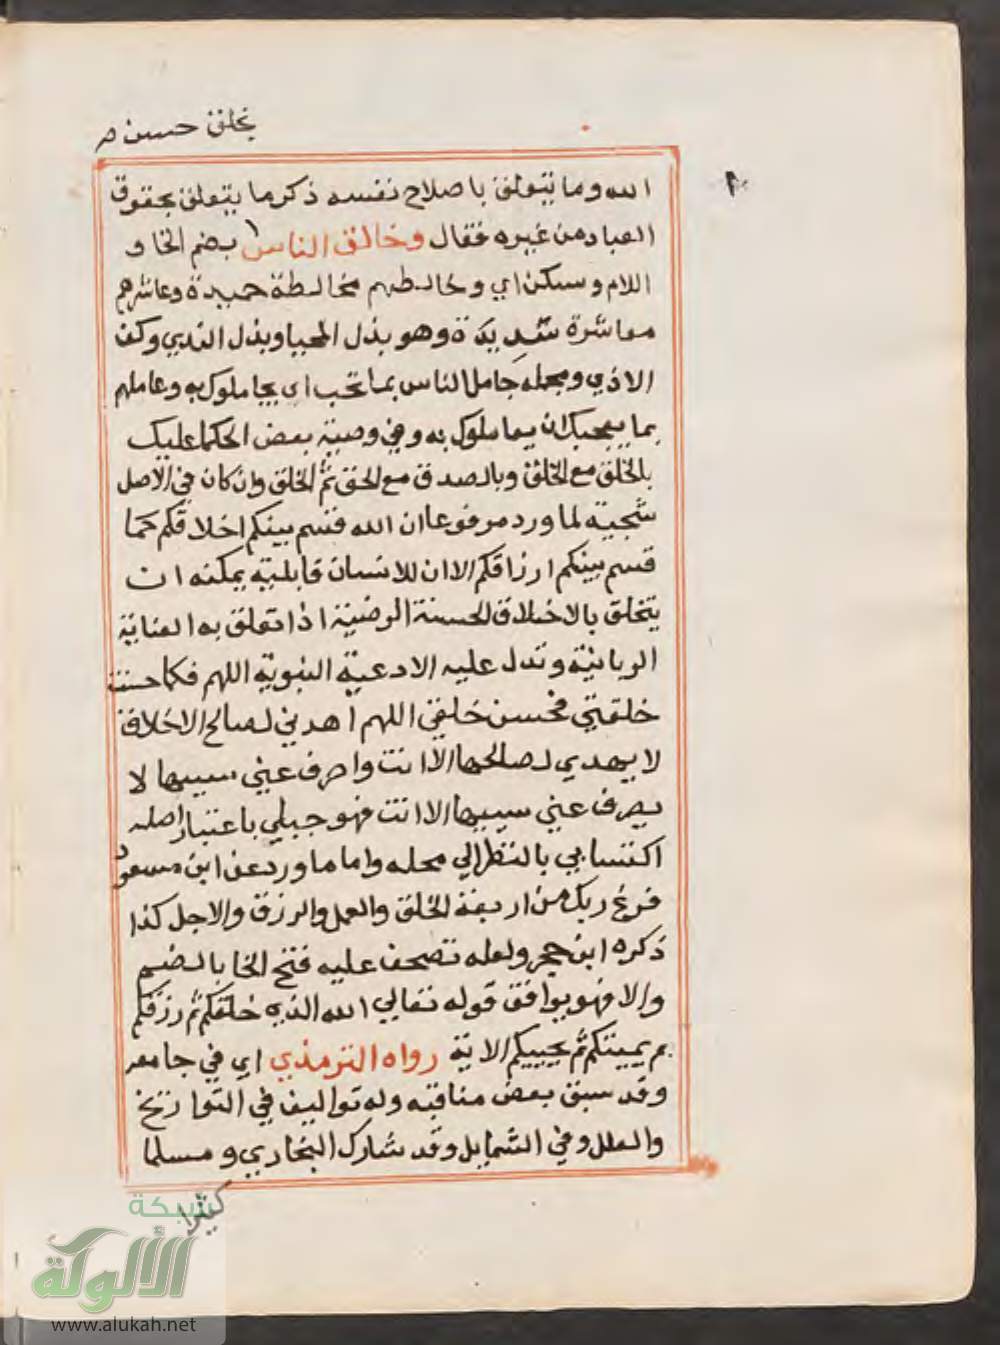 بخلق حسن صح
الله وما يتعلق باصلاح نفسه ذكر ما يتعلق بحقوق
العباد من غيره فقال وخالق الناس بضم الخا و
اللام وسكن اي وخالطهم مخالطة حميدة وعاشرهم
معاشرة شديدة وهو بذل المحيا وبذل الندي وكف
الاذي ومجمله جامل الناس بما تحب اي يجاملوك به وعاملهم
بما يعجبك ان يعاملوك به وفي وصية بعض الحكما عليك
بالخلق مع الخلق وبالصدق مع الحق ثم الخلق وان كان في الاصل
سجية لما ورد مرفوعا ان الله قسم بينكم اخلاقكم كما
قسم بينكم ارزاقكم الا ان للانسان قابلية يمكنه ان
يتخلق بالاخلاق الحسنة الرضية اذا تعلق به العناية
الربانية وتدل عليه الادعية النبوية اللهم فكما حسنت
خلقتي فحسن خلقي اللهم اهدني لصالح الاخلاق
لا يهدي لصالحها الا انت واصرف عني سييها لا
يصرف عني سييها الا انت فهو جبلي باعتبار اصله
اكتسابي بالنظر الي محله واما ما ورد عن ابن مسعود
فرغ ربك من اربعة الخلق والعمل والرزق والاجل كذا
ذكره ابن حجر ولعله تصحف عليه فتح الخا بالضم
والا فهو يوافق قوله تعالي الله الذي خلقكم ثم رزقكم
ثم يميتكم ثم يحييكم الاية رواه الترمذي اي في جامعه
وقد سبق بعض مناقبه وله تواليف في التواريخ
والعلل وفي الشمايل وقد شارك البخاري ومسلما
كثيرا
شبكة
الألوكة
www.alukah.net